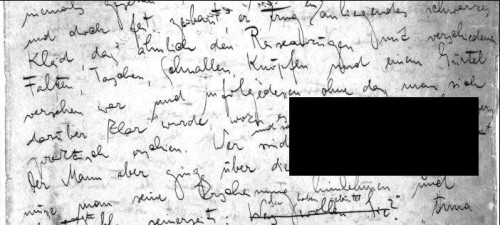 niemals gesehen
und doch fest gebaut, er trug ein anliegendes schwarzes
Kleid das ähnlich den Reiseanzügen mit verschiedenen
Falten, Taschen, Schnallen, Knöpfen und einem Gürtel
versehen war und infolgedessen ohne dass man sich
darüber klar wurde, wozu es
praktisch erschien. Wer sind
der Mann aber ging über die
müsse man seine Erscheinung hinnehmen und
seinerseits: